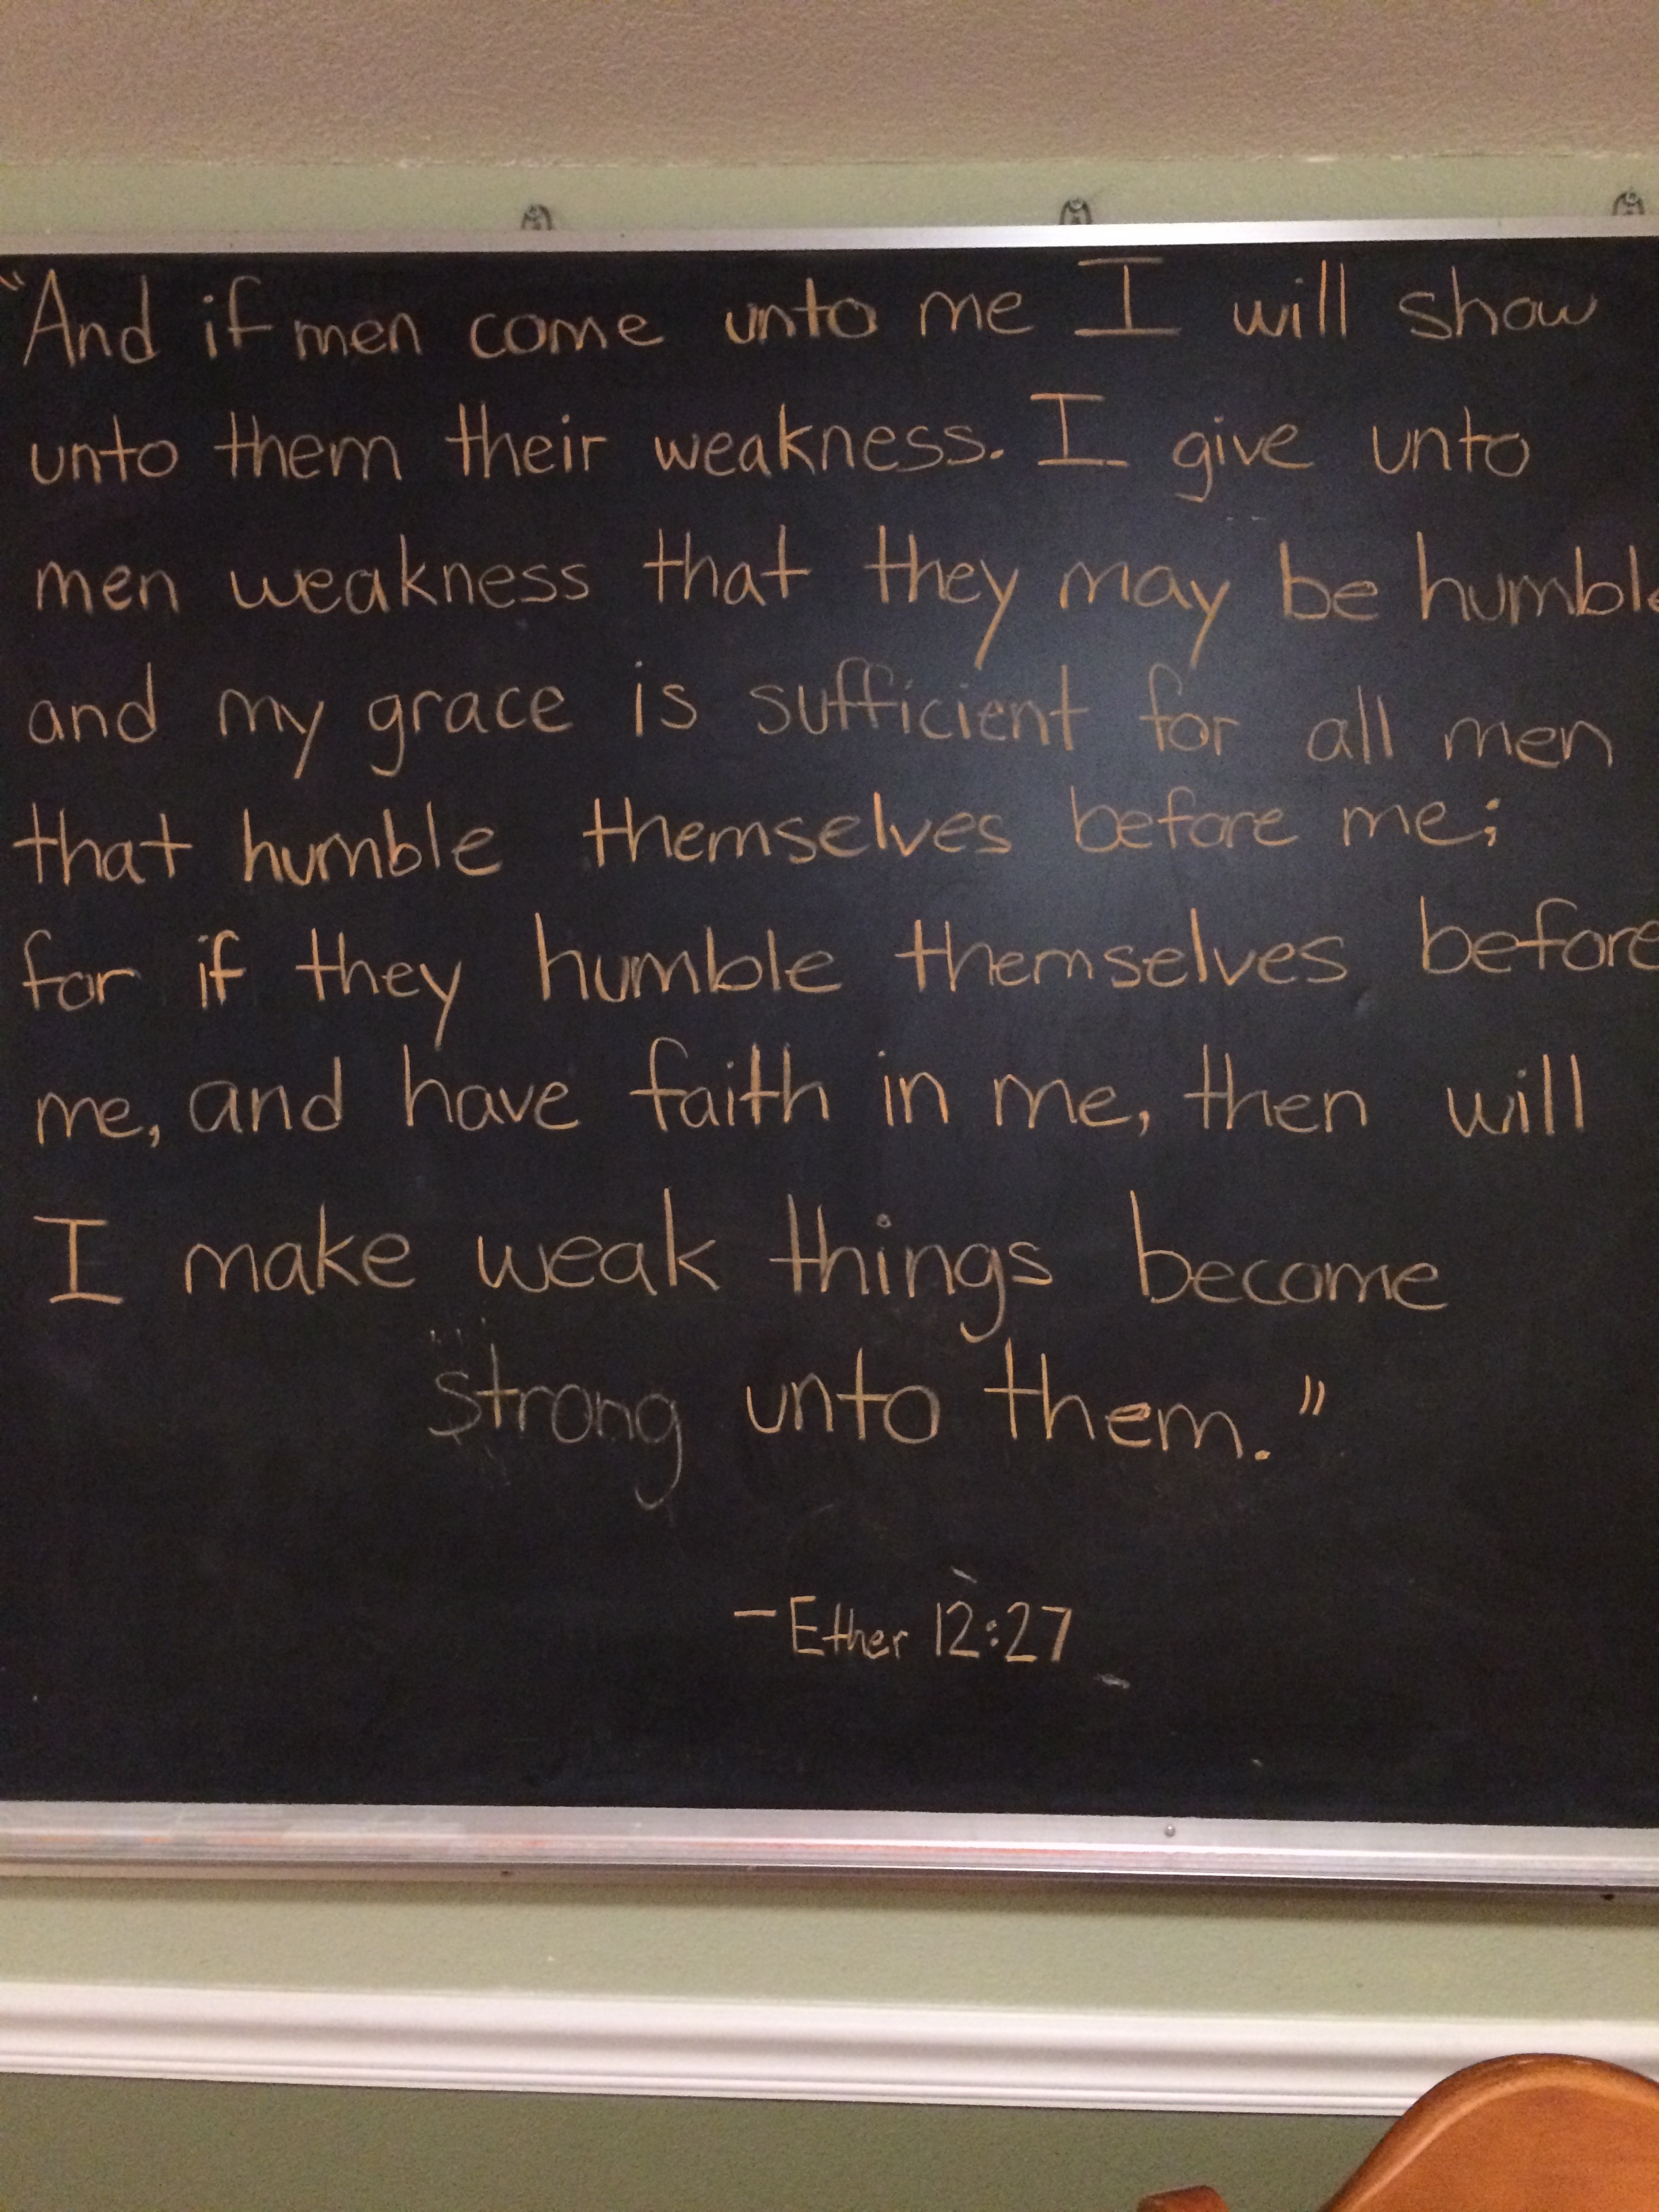 "And if men come unto me I will show
unto them their weakness. I give unto
men weakness that they may be humble
and my grace is sufficient for all men
that humble themselves before me;
for if they humble themselves before
me, and have faith in me, then will
I make weak things become
strong unto them."
- Ether 12:27